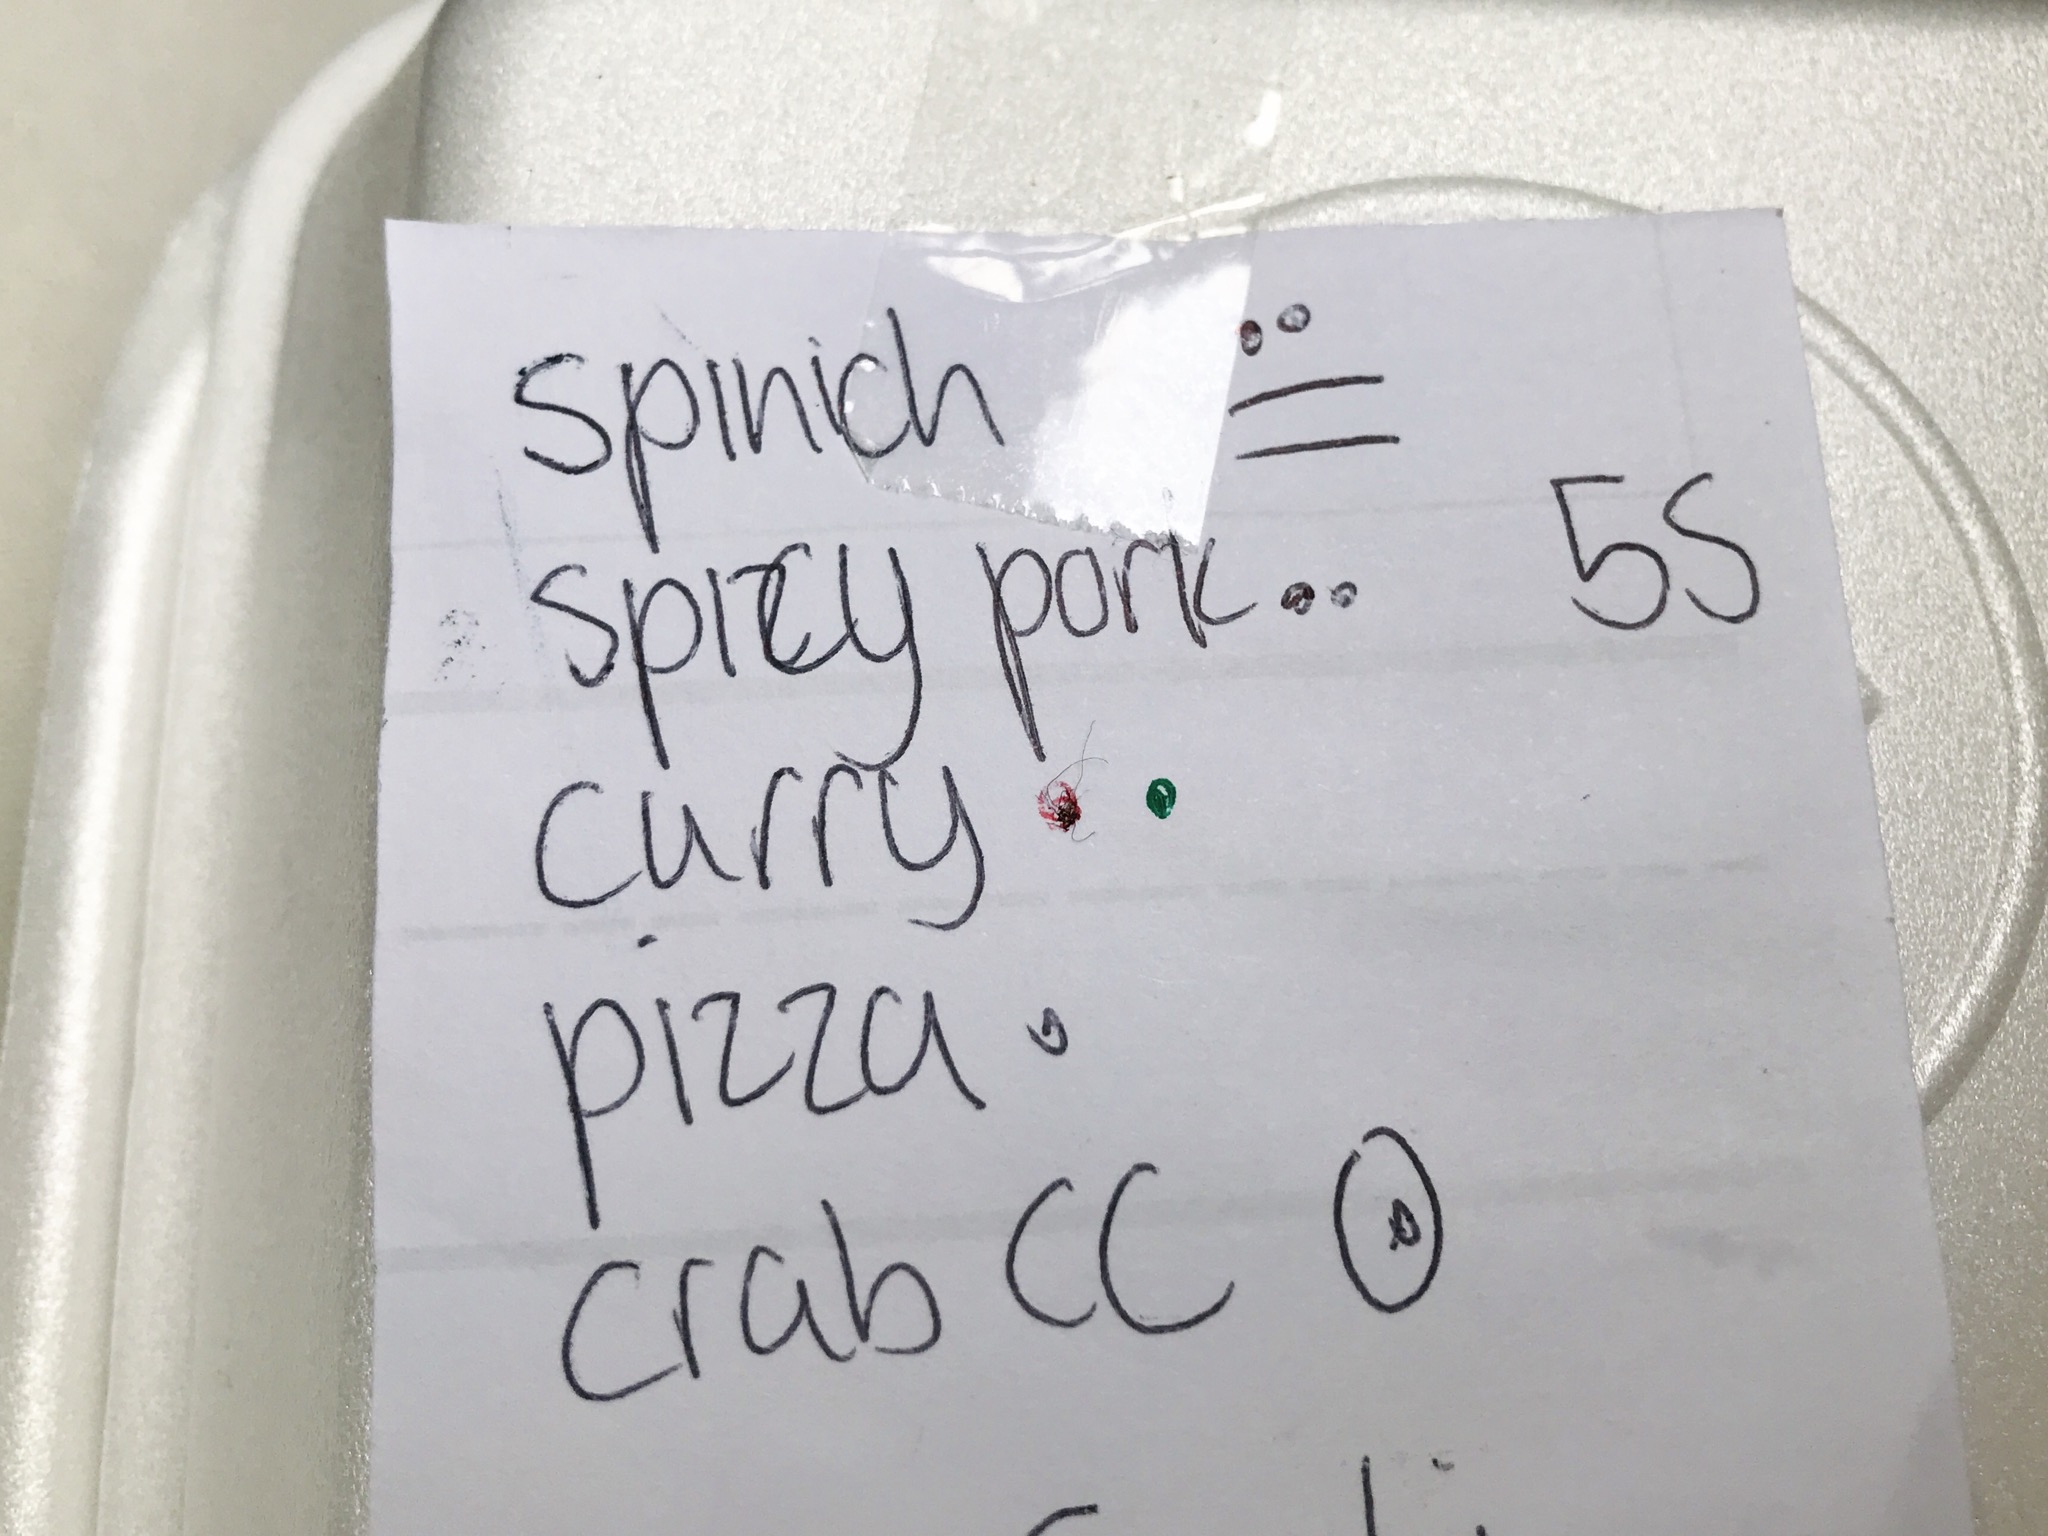 spinich
spicy pork 5S
curry
pizza
crab CC